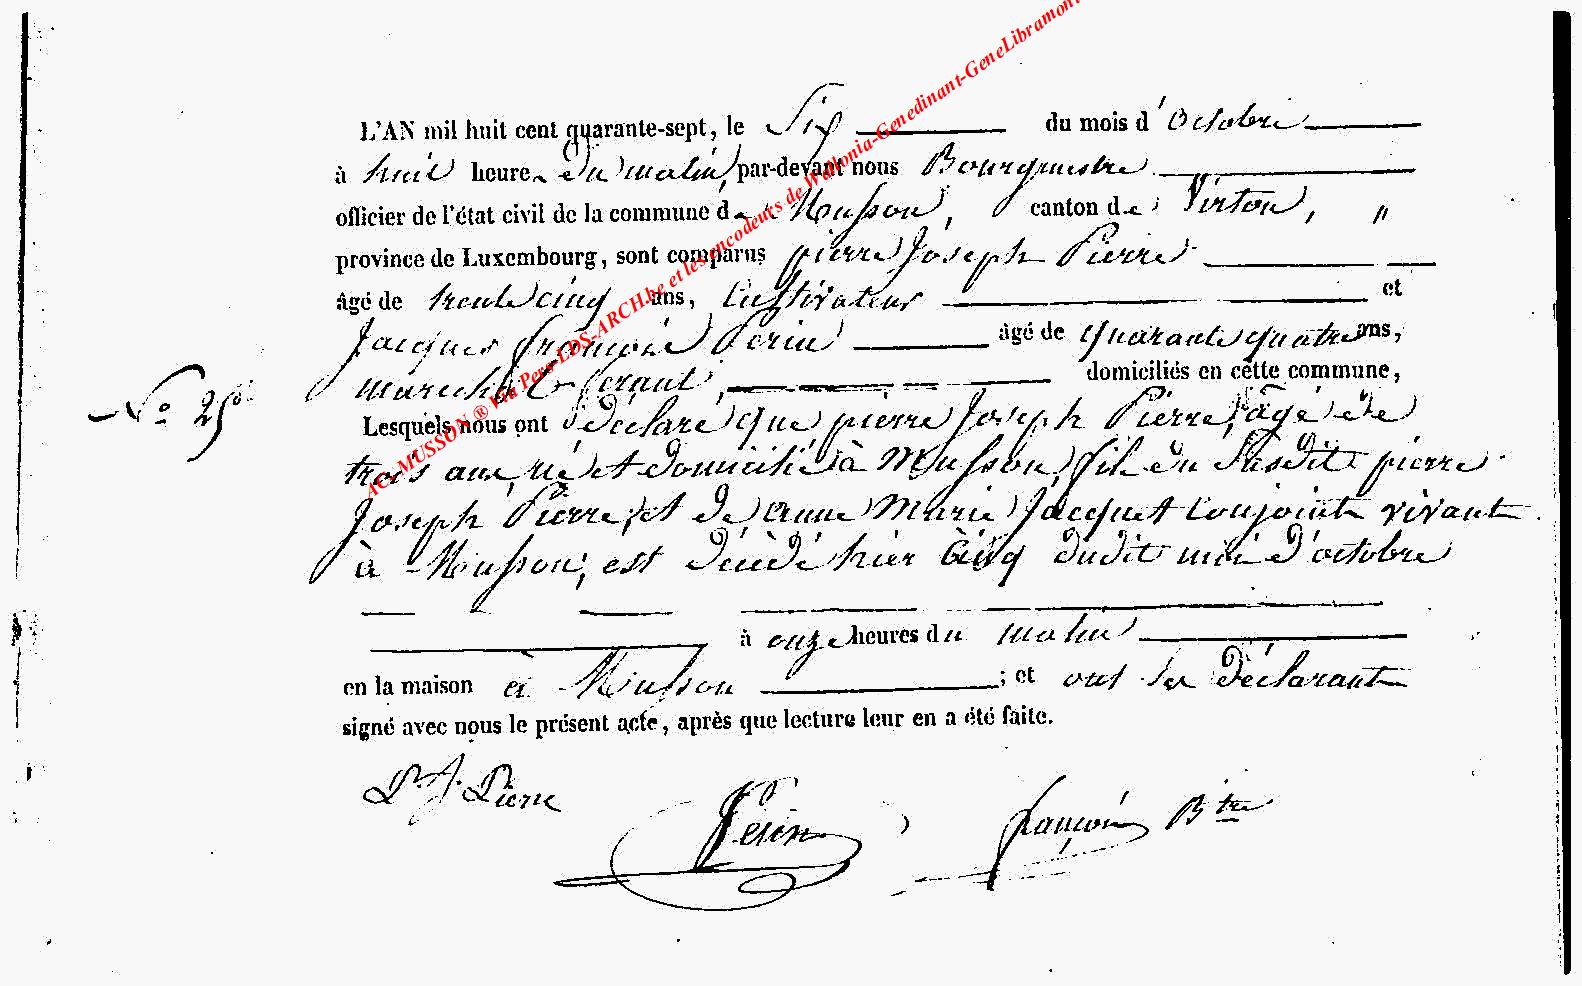 L'AN mil huit cent quarante-sept, le Six du mois d'Octobre
à huit heure du matin, par-devant nous Bourgmestre
officier de l'état civil de la commune de Musson, canton de Virton, "
province de Luxembourg, sont comparus pierre Joseph Pierre
âgé de trente cinq ans, Cultivateur et
Jacques françois Perin âgé de quarante quatre ans,
marechal ferant, domiciliés en cette commune,
N° 25
Lesquels nous ont déclaré que pierre Joseph Pierre, âgé de
trois ans, né et domicilié à Musson, fils du Susdit pierre
Joseph Pierre, et de anne Marie Jacquet Conjoints vivant
à Musson, est décédé hier Cinq dudit moi d'octobre
à onze heures du matin
en la maison à Musson ; et ont les déclarant
signé avec nous le présent acte, après que lecture leur en a été faite.
P. J. Pierre
Perin
françois Btre
AC-MUSSON ® Via Pero-LDS-ARCH.be et les encodeurs de Wallonia-Genedinant-GeneLibramont